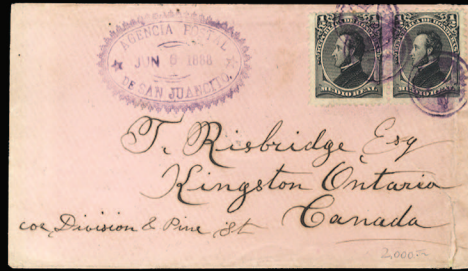 AGENCIA POSTAL
JUN 6 1888
DE SAN JUANCITO.
MEDIO REAL
MEDIO REAL
T. Risbridge Esq
Kingston Ontario
Canada
cor Division & Pine St
2000